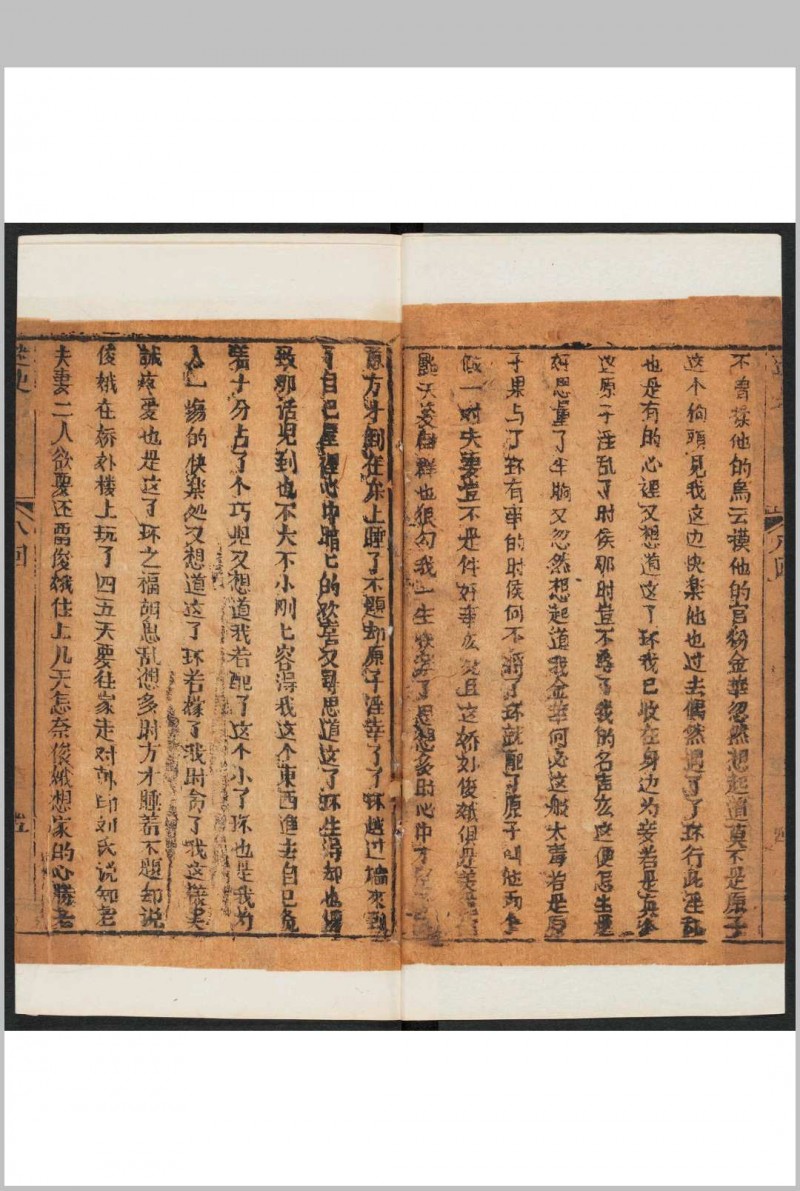 不曾揉他的烏云摸他的官粉金華忽然想起道莫不是原子
这个狗頭見我这边快楽他也过去偶然遇了了环行此淫乱
也是有的心裡又想道这了环我已收在身边为妾若是真
这原子淫乱了时侯那时豈不辱了我的名声広这便怎生是
好思量了半晌又忽然想起道我金華何必这般太毒若是原
子果与了环有事的时侯何不将了环就配了原子叫他两个
做一对夫妻豈不是件好事広况且这娇刘俊娥但是美
天姿国群也狠勾我一生快了思想多时心中才
原方才到在床上睡了不題却原子淫幸了了环越过墻來到
了自己屋裡心中暗七的欢喜又尋思道这了环生得却也標
致那话児到也不大不小刚七容得我这个東西進去自己兔
着十分占了个巧児又想道我若配了这个小了环也是我为
人一塲的快楽处又想道这了环若嫁了我时侖了我这様夫
誠疼愛也是这了环之福胡思乱想多时方才睡着不題却说
俊娥在娇外楼上玩了四五天要往家走对郭印刘氏说知
夫妻二人欲要还畱俊娥住上几天怎奈俊娥想家的心勝者
史
八回
八回